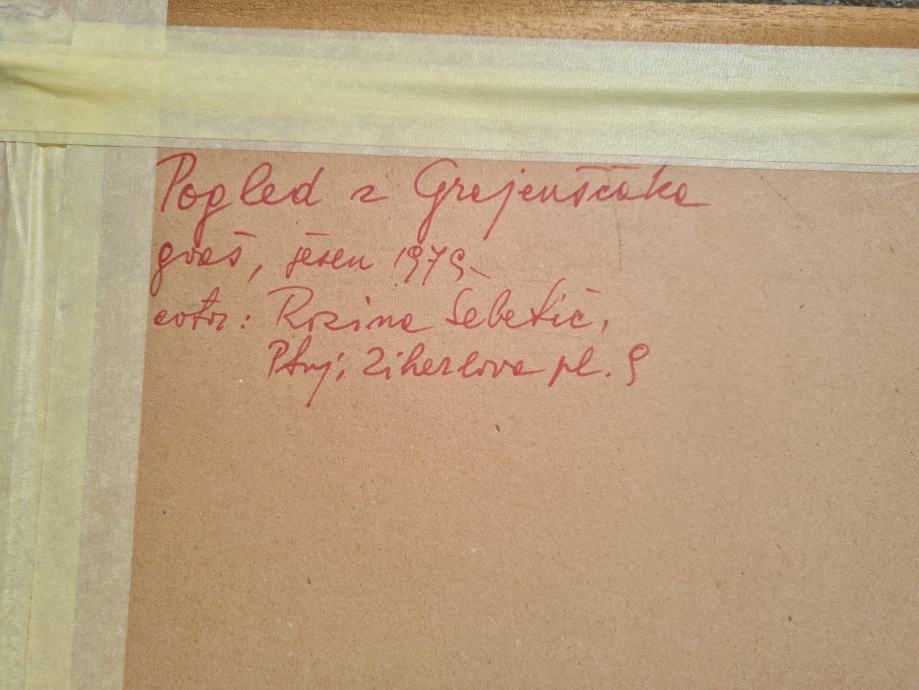 Pogled z Grajenščaka
gvaš, jesen 1979.
avtor: Rozina Šebetič,
Ptuj, Ziherlova pl. 9